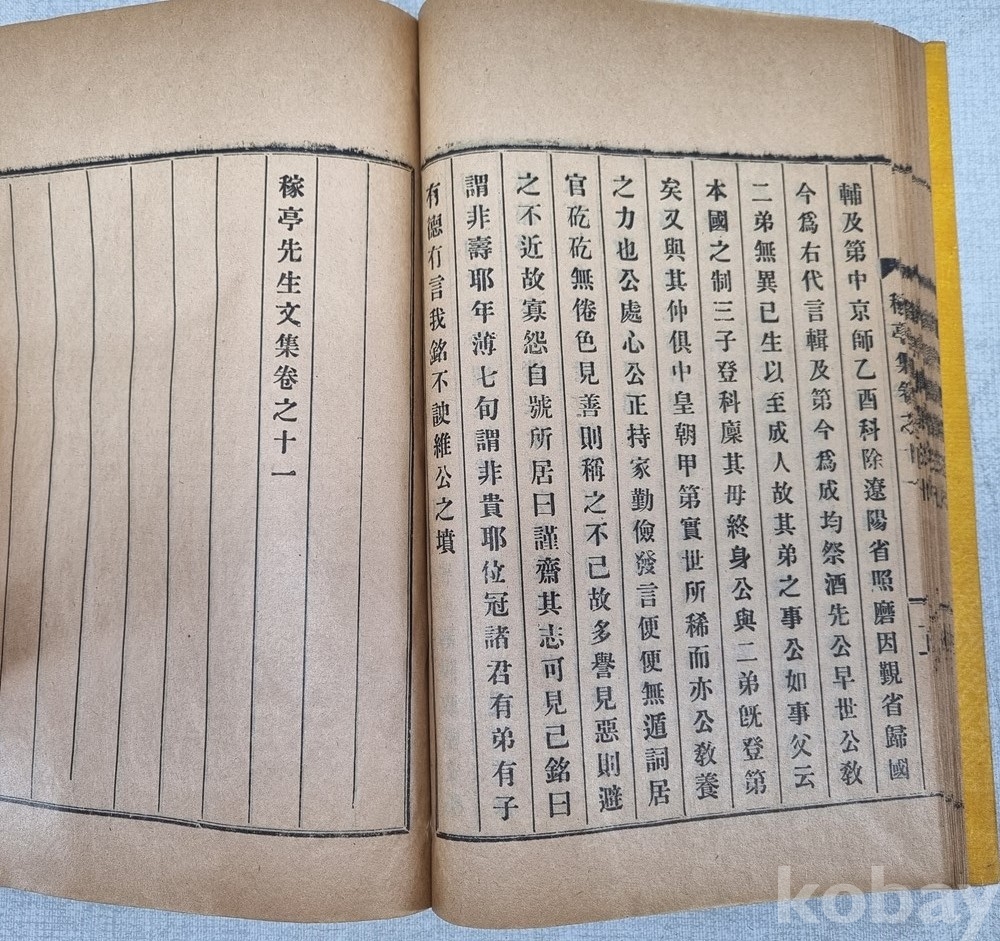 輔及第中京師乙酉科除遼陽省照磨因覲省歸國
今爲右代言輯及第今爲成均祭酒先公早世公敎
二弟無異已生以至成人故其弟之事公如事父云
本國之制三子登科廩其母終身公與二弟旣登第
矣又與其仲俱中皇朝甲第實世所稀而亦公敎養
之力也公處心公正持家勤儉發言便便無遁詞居
官矻矻無倦色見善則稱之不已故多譽見惡則避
之不近故寡怨自號所居曰謹齋其志可見已銘曰
謂非壽耶年薄七旬謂非貴耶位冠諸君有弟有子
有德有言我銘不諛維公之墳
稼亭先生文集卷之十一
稼亭集卷之十一
kobay